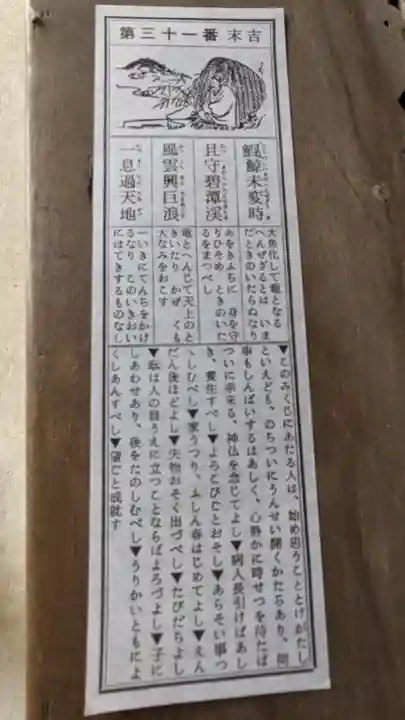 第三十一番 末吉
鯤鯨未変時
且守碧潭渓
風雲興巨浪
一息過天地
大魚化して竜となる
へんぜざるとは いま
だときのいたらぬなり
あをきふちに 身を守
りひそめ ときのいた
るをまつべし
竜とへんじて天上のと
きいたり かぜ くも
大なみをおこす
一いきにてんちをかけ
るなり このいきおい
にはてきするものなし
▼このみくじにあたる人は、始め思うこととげがたし
といえども、のちついにうんせい開くかたちあり、何
事もしんぱいするはあしく、心静かに時せつを待たば
ついに幸来る、神仏を念じてよし▼病人長引けばあし
き、養生すべし▼よろこびごとおそし▼あらそい事つ
ゝしむべし▼家うつり、ふしん春はじめてよし▼えん
だん後ほどよし▼失物おそく出づべし▼たびだちよし
▼転は人の目うえに立つことならばよろづよし▼子に
しあわせあり、後をたのしむべし▼うりかいともによ
くしあんすべし▼望ごと成就す